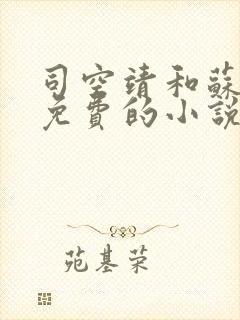 司空靖和蘇
免費的小說
苑基荣